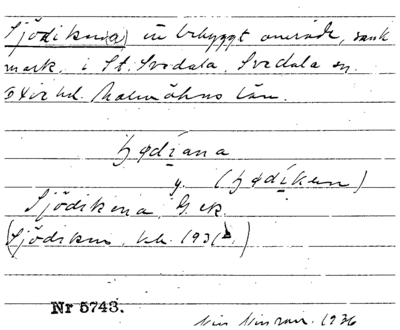 Sjödiken(a) nu bebyggt område, sank
mark, i St. Svedala, Svedala sn.
Oxie hd. Malmöhus län.
ʒødíana
y. (ʒødíken)
Sjödikena G. ek.
(Sjödiken, kb. 1931.)
Nr 5743.
1936